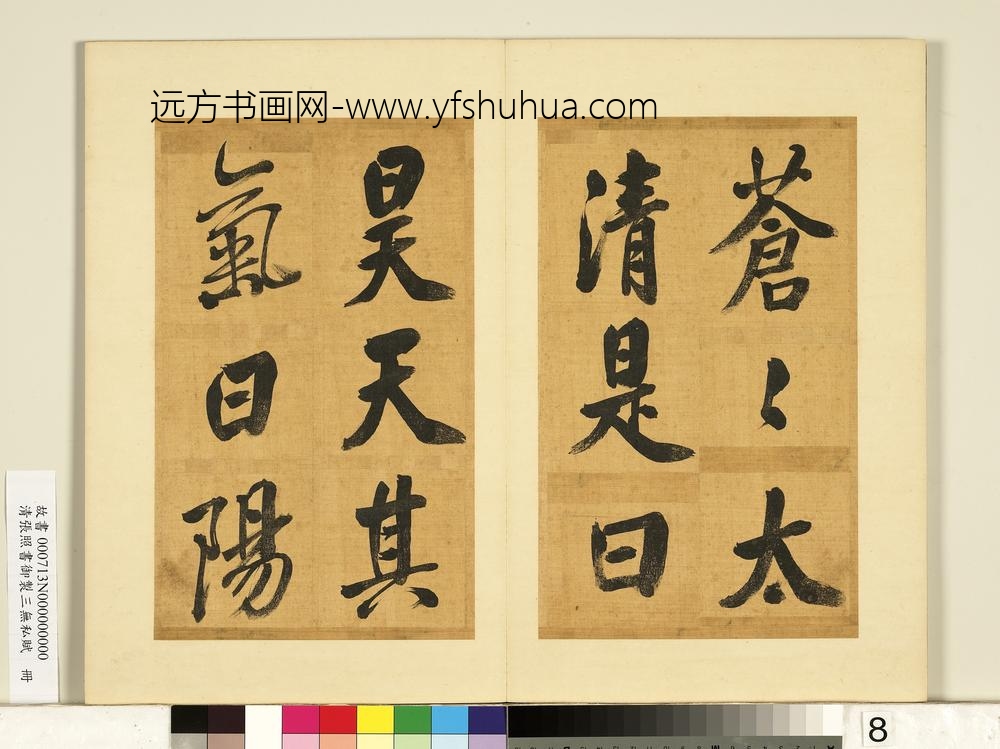 远方书画网-www.yfshuhua.com
蒼〻太
清是曰
昊天其
氣曰陽
故書 000713N000000000
清張照書御製三無私賦 冊
8